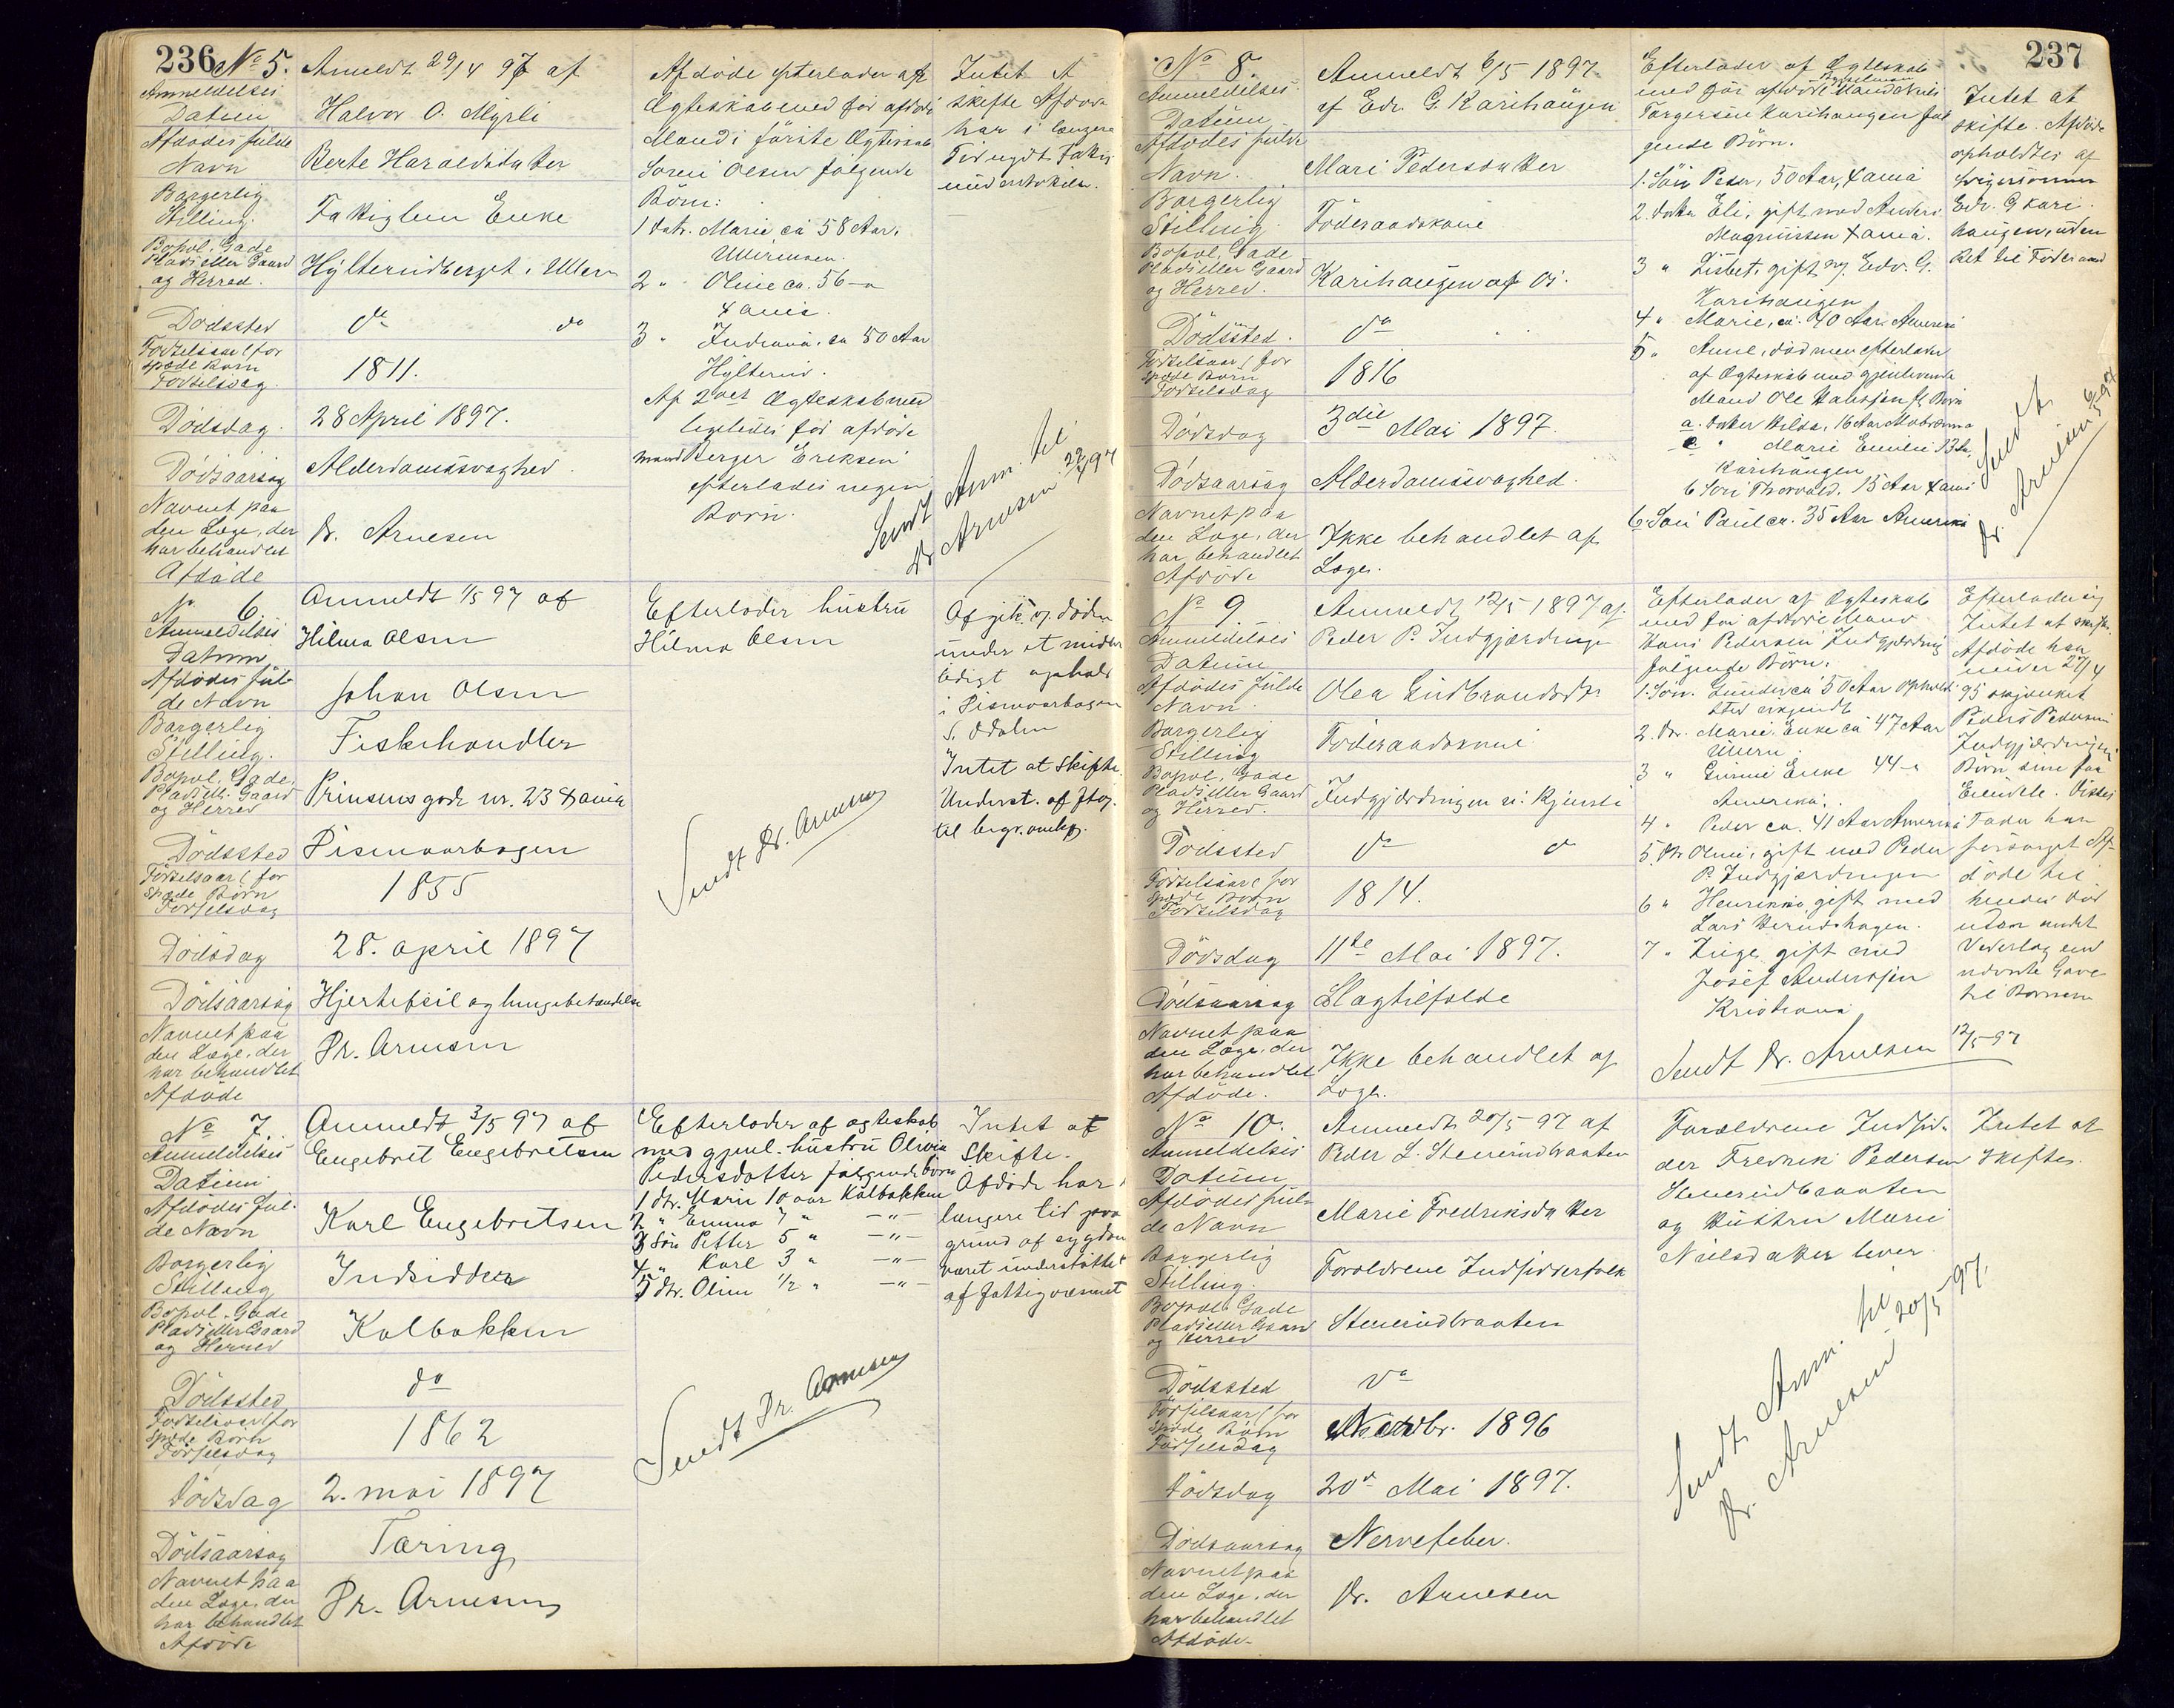 236 No 5.
Anmeldelses
Datum
Anmeldt 29/4 97 af
Halvor O. Myrli
Afdødes fulde
Navn
Berte Haraldsdatter
Borgerlig
Stilling.
Fattiglem Enke
Bopæl, Gade
Plads eller Gaard
og Herred.
Hylterudberget, Ullern
Dødssted
do do
Fødselsaar (for
spæde Børn
Fødselsdag.
1811.
Dødsdag.
28 April 1897.
Dødsaarsag
Alderdomssvaghed.
Navnet paa
den Læge, der
har behandlet
Afdøde
Dr. Arnesen
Afdøde efterlader af
Ægteskab med før afdøde
Mand i første Ægteskab
Søren Olsen følgende
Børn:
1 Datr. Marie ca 58 Aar,
2 " Oline ca. 56 - "
Xania.
3 " Indiana, ca 50 Aar
Hylterud.
Af 2det Ægteskab med
ligeledes før afdøde
Mand Berger Eriksen
efterlades ingen
Børn.
Intet at
skifte Afdøde
har i længere
Tid nydt Fattig
understøttelse.
Sendt Anm. til
Dr. Arnesen 29/4 97
No 6.
Anmeldelses
Datum
Anmeldt 1/5 97 af
Hilma Olsen
Afdødes ful-
de Navn
Johan Olsen
Borgerlig
Stilling.
Fiskehandler
Bopæl, Gade,
Plads ell. Gaard
og Herred
Prinsens gade nr. 23 Xania
Dødssted
Pismoorbogen
Fødselsaar (for
spæde Børn
Fødselsdag
1855
Dødsdag
28. april 1897
Dødsaarsag
Hjertefeil og lungebetændelse
Navnet paa
den Læge, der
har behandlet
Afdøde
Dr. Arnesen
Efterlader hustru
Hilma Olsen
Afgik v. døden
under et midler
tidigt ophold
i Pismoorbogen
S. Odalen
Intet at skifte.
Underst. af Ftgv.
til begr. omkg.
Sendt Dr. Arnesen
No 7.
Anmeldelses
Datum.
Anmeldt 3/5 97 af
Engebret Engebretsen
Afdødes ful-
de Navn
Karl Engebretsen
Borgerlig
Stilling
Indsidder
Bopæl, Gade
Plads eller Gaard
og Herred
Kolbakken
Dødssted
do
Fødselsaar (for
spæde Børn
Fødselsdag
1862
Dødsdag
2. mai 1897
Dødsaarsag
Tæring
Navnet paa
den Læge, der
har behandlet
Afdøde
Dr. Arnesen
Efterlader af ægteskab
med gjenl. hustru Olivia
Pedersdatter følgende børn
1 dtr. Marie 10 aar Kolbakken
2 " Emma 7 " - " -
3 Søn Petter 5 " - " -
4 " Karl 3 " - " -
5 dtr. Oline 1/2 " - " -
Intet at
skifte.
Afdøde har
længere tid paa
grund af sygdom
været understøttet
af fattigvæsenet
Sendt Dr. Arnesen
237
No 8.
Anmeldelses-
Datum
Anmeldt 6/5 1897
af Edv. G. Karihaugen
Afdødes fulde
Navn.
Mari Pedersdatter
Borgerlig
Stilling
Føderaadskone
Bopæl, Gade
Plads eller Gaard
og Herred.
Karihaugen af Os.
Dødssted.
do
Fødselsaar (for
spæde Børn
Fødselsdag
1816
Dødsdag
3die Mai 1897.
Dødsaarsag
Alderdomssvaghed.
Navnet paa
den Læge, der
har behandlet
Afdøde
Ikke behandlet af
Læge.
Efterlader af Ægteskab
med før afdøde Mand
Torgersen Karihaugen føl
gende Børn.
1. Søn Peder, 50 Aar, Xania
2. Datter Eli, gift med Anders
Magnussen Xania.
3 " Lisbet, gift m. Edv. G.
Karihaugen
4 " Marie, ca. 40 Aar Amerika
5 " Anne, død men efterlader
af Ægteskab med gjenlevende
Mand Ole Halvorsen fl. Børn
a. Datter Hilda, 16 Aar
" Marie Emilie 13 Aar,
Karihaugen
6 Søn Thorvald, 15 Aar Xania
6. Søn Paul ca. 35 Aar Amerika
Intet at
skifte. Afdøde
opholdtes af
Svigersønnen
Edv. G Kari-
haugen, uden
Ret til Føderaad
Sendt
Dr. Arnesen 6/5 97
No 9
Anmeldelses
Datum
Anmeldt 12/5 1897 af
Peder P. Indgjærdingen
Afdødes fulde
Navn.
Olea Gudbrandsdtr.
Borgerlig
Stilling
Føderaadskone
Bopæl, Gade
Plads eller Gaard
og Herred.
Indgjærdingen u. Kjensli
Dødssted
do do
Fødselsaar (for
spæde Børn
Fødselsdag
1814.
Dødsdag
11te Mai 1897.
Dødsaarsag
Slagtilfælde
Navnet paa
den Læge, der
har behandlet
Afdøde.
Ikke behandlet af
Læge.
Efterlader af Ægteskab
med før afdøde Mand
Hans Pedersen Indgjærding
følgende Børn.
1. Søn. Gunder ca 50 Aar Opholds
sted ukjendt
2. Dtr. Marie. Enke ca 47 Aar
Ullern.
3 " Gunni Enke 44 - "
Amerika,
4 " Peder ca. 41 Aar Amerika
5. Dtr Oline, gift med Peder
P. Indgjærdingen
6 " Henrikka, gift med
Lars
7 " Inge gift med
Josef Andersen
Kristiania
Efterlader sig
Intet at skifte.
Afdøde har
under 27/4
95 skjænket
Peders Pedersen
Indgjærdingens
Børn sine faa
Eiendele. Disses
Fader har
forsørget Af-
døde til
hendes død
uden andet
Vederlag end
nævnte Gave
til Børnene
Sendt Dr. Arnesen 12/5 - 97
No 10.
Anmeldelses
Datum
Anmeldt 20/5 - 97 af
Peder L. Stenerudbraaten
Afdødes ful-
de Navn
Marie Fredriksdatter
Borgerlig
Stilling.
Forældrene Indsidderfolk
Bopæl. Gade
Plads eller Gaard
og Herred
Stenerudbraaten
Dødssted
do
Fødselsaar (for
spæde Børn
Fødselsdag
1896
Dødsdag
20de Mai 1897.
Dødsaarsag
Nervefeber.
Navnet paa
den Læge, der
har behandlet
Afdøde.
Dr. Arnesen
Forældrene Indsid-
der Fredrik Pedersen
Stenerudbraaten
og Hustru Marie
Nielsdatter lever.
Intet at
skiftes.
Sendt Anm. til
Dr. Arnesen 20/5 97.